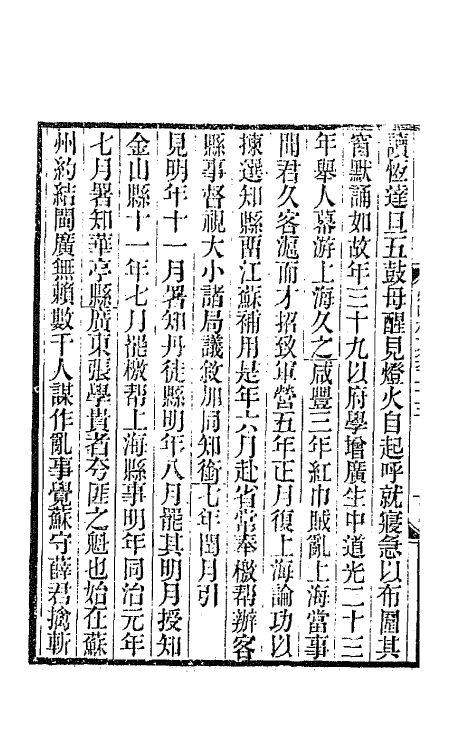 讀恆達旦五鼓母醒見燈火自起呼就寢急以布圍其
窗默誦如故年三十九以府學增廣生中道光二十三
年舉人幕游上海久之咸豐三年紅巾賊亂上海當事
聞君久客滬而才招致軍營五年正月復上海論功以
揀選知縣留江蘇補用是年六月赴省常奉檄幫辦客
縣事督視大小諸局議敘加同知銜七年閏月引
見明年十一月署知丹徒縣明年八月罷其明月授知
金山縣十一年七月罷檄幫上海縣事明年同治元年
七月署知華亭縣廣東張學貴者夸匪之魁也始在蘇
州約結閩廣無賴數千人謀作亂事覺蘇守薛君擒斬